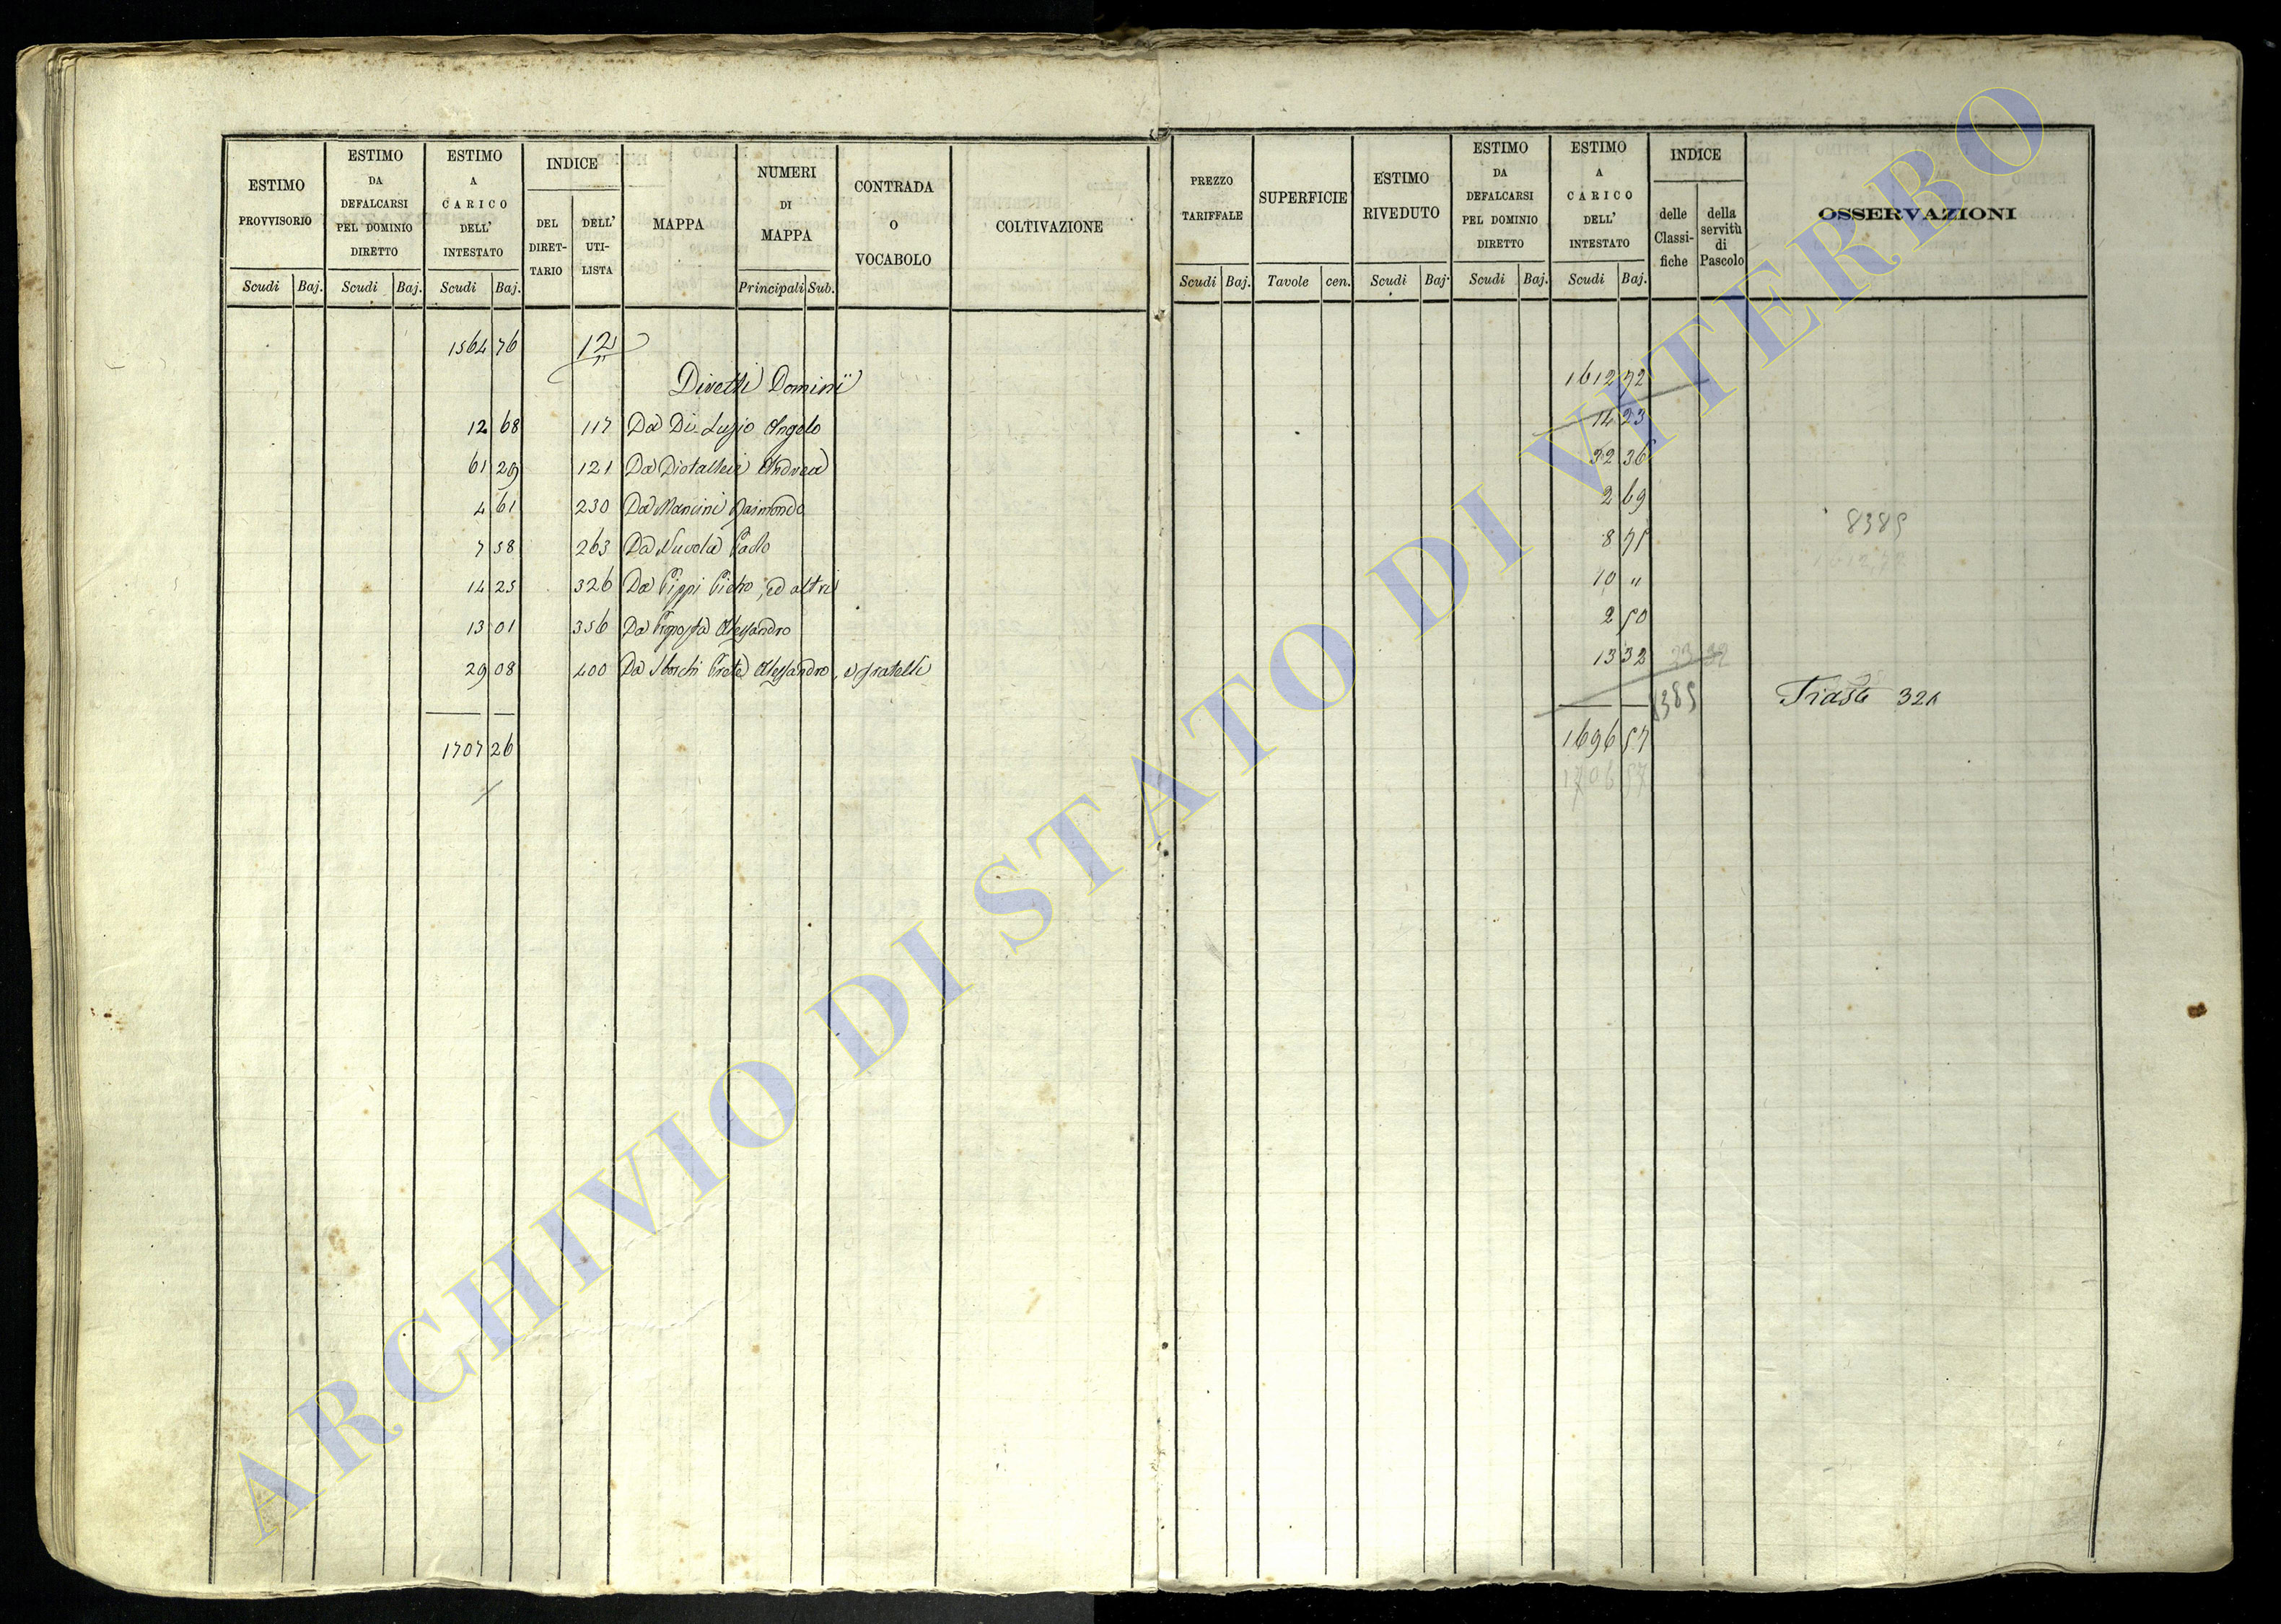 ESTIMO PROVVISORIO
Scudi Baj.
ESTIMO DA DEFALCARSI PEL DOMINIO DIRETTO
Scudi Baj.
ESTIMO A CARICO DELL' INTESTATO
Scudi Baj.
INDICE
DEL DIRET- TARIO
DELL' UTI- LISTA
MAPPA
NUMERI DI MAPPA
Principali Sub.
CONTRADA O VOCABOLO
COLTIVAZIONE
1564 76 12
Diretti Dominii
12 68 117 Da Di-Luzio Angelo
61 29 121 Da Diotallevi Andrea
4 61 230 Da Mancini Raimondo
7 58 263 Da Nuvola Paolo
14 25 326 Da Pippi Pietro, ed altri
13 01 356 Da Proposta Alessandro
29 08 400 Da Storchi Prete Alessandro, e fratelli
1707 26
PREZZO TARIFFALE
Scudi Baj.
SUPERFICIE
Tavole cen.
ESTIMO RIVEDUTO
Scudi Baj.
ESTIMO DA DEFALCARSI PEL DOMINIO DIRETTO
Scudi Baj.
ESTIMO A CARICO DELL' INTESTATO
Scudi Baj.
INDICE
delle Classi- fiche
della servitù di Pascolo
OSSERVAZIONI
1612 72
14 23
32 36
2 69
8 75 8385
10 "
2 50
13 32
8385
1696 57
1706 57
ARCHIVIO DI STATO DI VITERBO